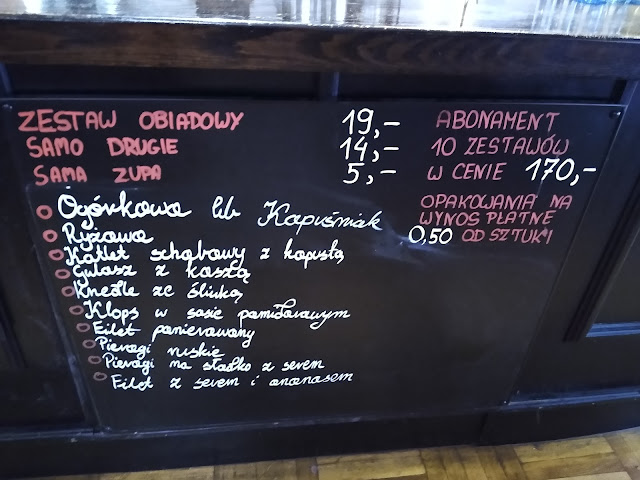 ZESTAW OBIADOWY 19,-
SAMO DRUGIE 14,-
SAMA ZUPA 5,-
ABONAMENT
10 ZESTAWÓW
W CENIE 170,-
OPAKOWANIA NA
WYNOS PŁATNE
0,50 OD SZTUKI
Ogórkowa lub Kapuśniak
Ryżowa
Kotlet schabowy z kapustą
Gulasz z kaszą
Knedle ze śliwką
Klops w sosie pomidorowym
Filet panierowany
Pierogi ruskie
Pierogi na słodko z serem
Filet z serem i ananasem